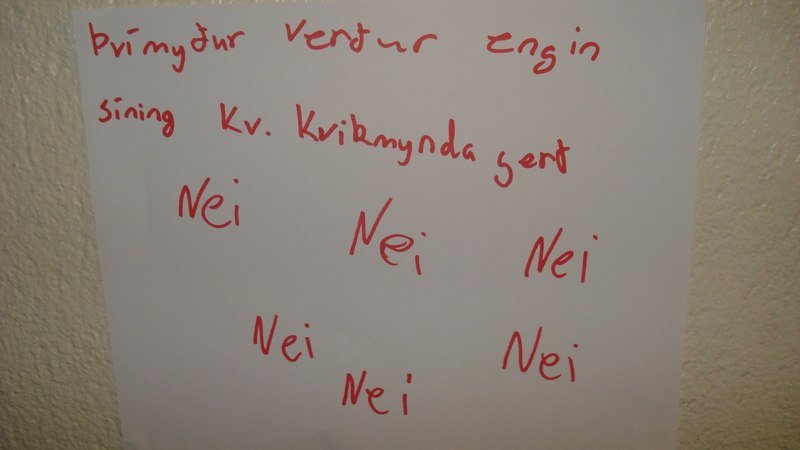 Þrímyður verður engin
síning Kv. Kvikmynda gerð
Nei Nei Nei
Nei Nei Nei